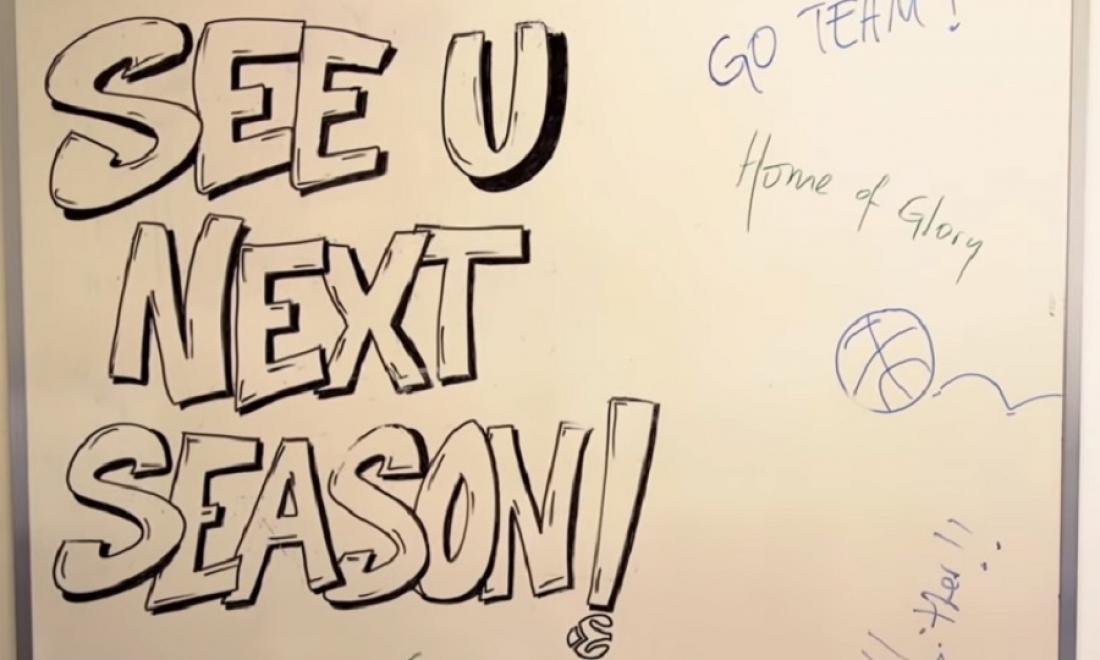 SEE U
NEXT
SEASON!
GO TEAM!
Home of Glory